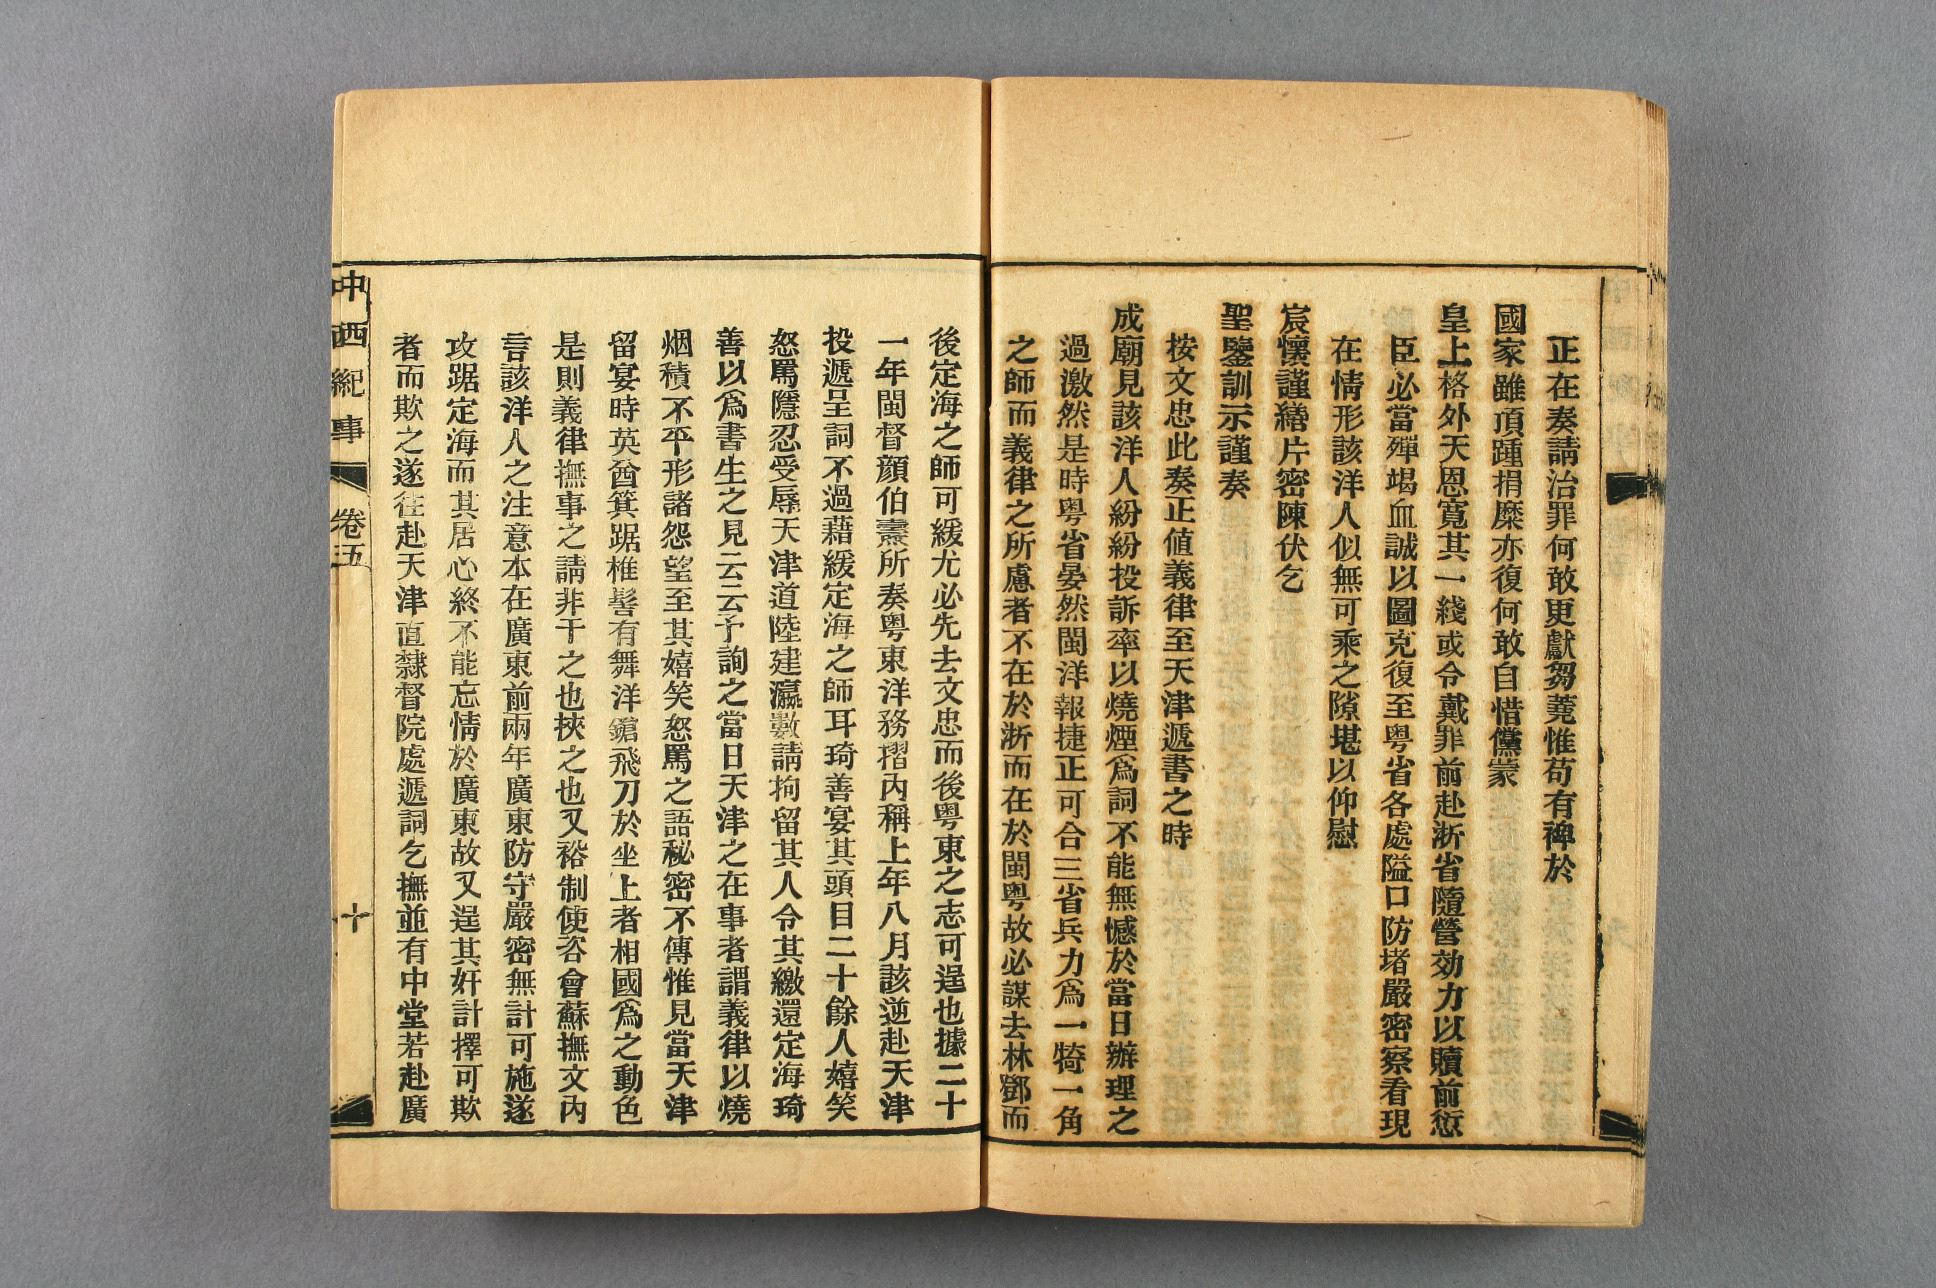 正在奏請治罪何敢更獻芻蕘惟苟有裨於
國家雖頂踵捐糜亦復何敢自惜儻蒙
皇上格外天恩寬其一綫或令戴罪前赴浙省隨營効力以贖前愆
臣必當殫竭血誠以圖克復至粤省各處隘口防堵嚴密察看現
在情形該洋人似無可乘之隙堪以仰慰
宸懷謹繕片密陳伏乞
聖鑒訓示謹奏
按文忠此奏正値義律至天津遞書之時
成廟見該洋人紛紛投訴率以燒煙爲詞不能無憾於當日辦理之
過激然是時粤省晏然閩洋報捷正可合三省兵力爲一犄一角
之師而義律之所慮者不在於浙而在於閩粤故必謀去林鄧而
後定海之師可緩尤必先去文忠而後粤東之志可逞也據二十
一年閩督顔伯燾所奏粤東洋務摺內稱上年八月該逆赴天津
投遞呈詞不過藉緩定海之師耳琦善宴其頭目二十餘人嬉笑
怒罵隱忍受辱天津道陸建瀛數請拘留其人令其繳還定海琦
善以爲書生之見云云予詢之當日天津之在事者謂義律以燒
烟積不平形諸怨望至其嬉笑怒罵之語秘密不傳惟見當天津
留宴時英酋箕踞椎髻有舞洋鎗飛刀於坐上者相國爲之動色
是則義律撫事之請非干之也挾之也又裕制使咨會蘇撫文內
言該洋人之注意本在廣東前兩年廣東防守嚴密無計可施遂
攻踞定海而其居心終不能忘情於廣東故又逞其奸計擇可欺
者而欺之遂往赴天津直隸督院處遞詞乞撫並有中堂若赴廣
中西紀事
卷五
十